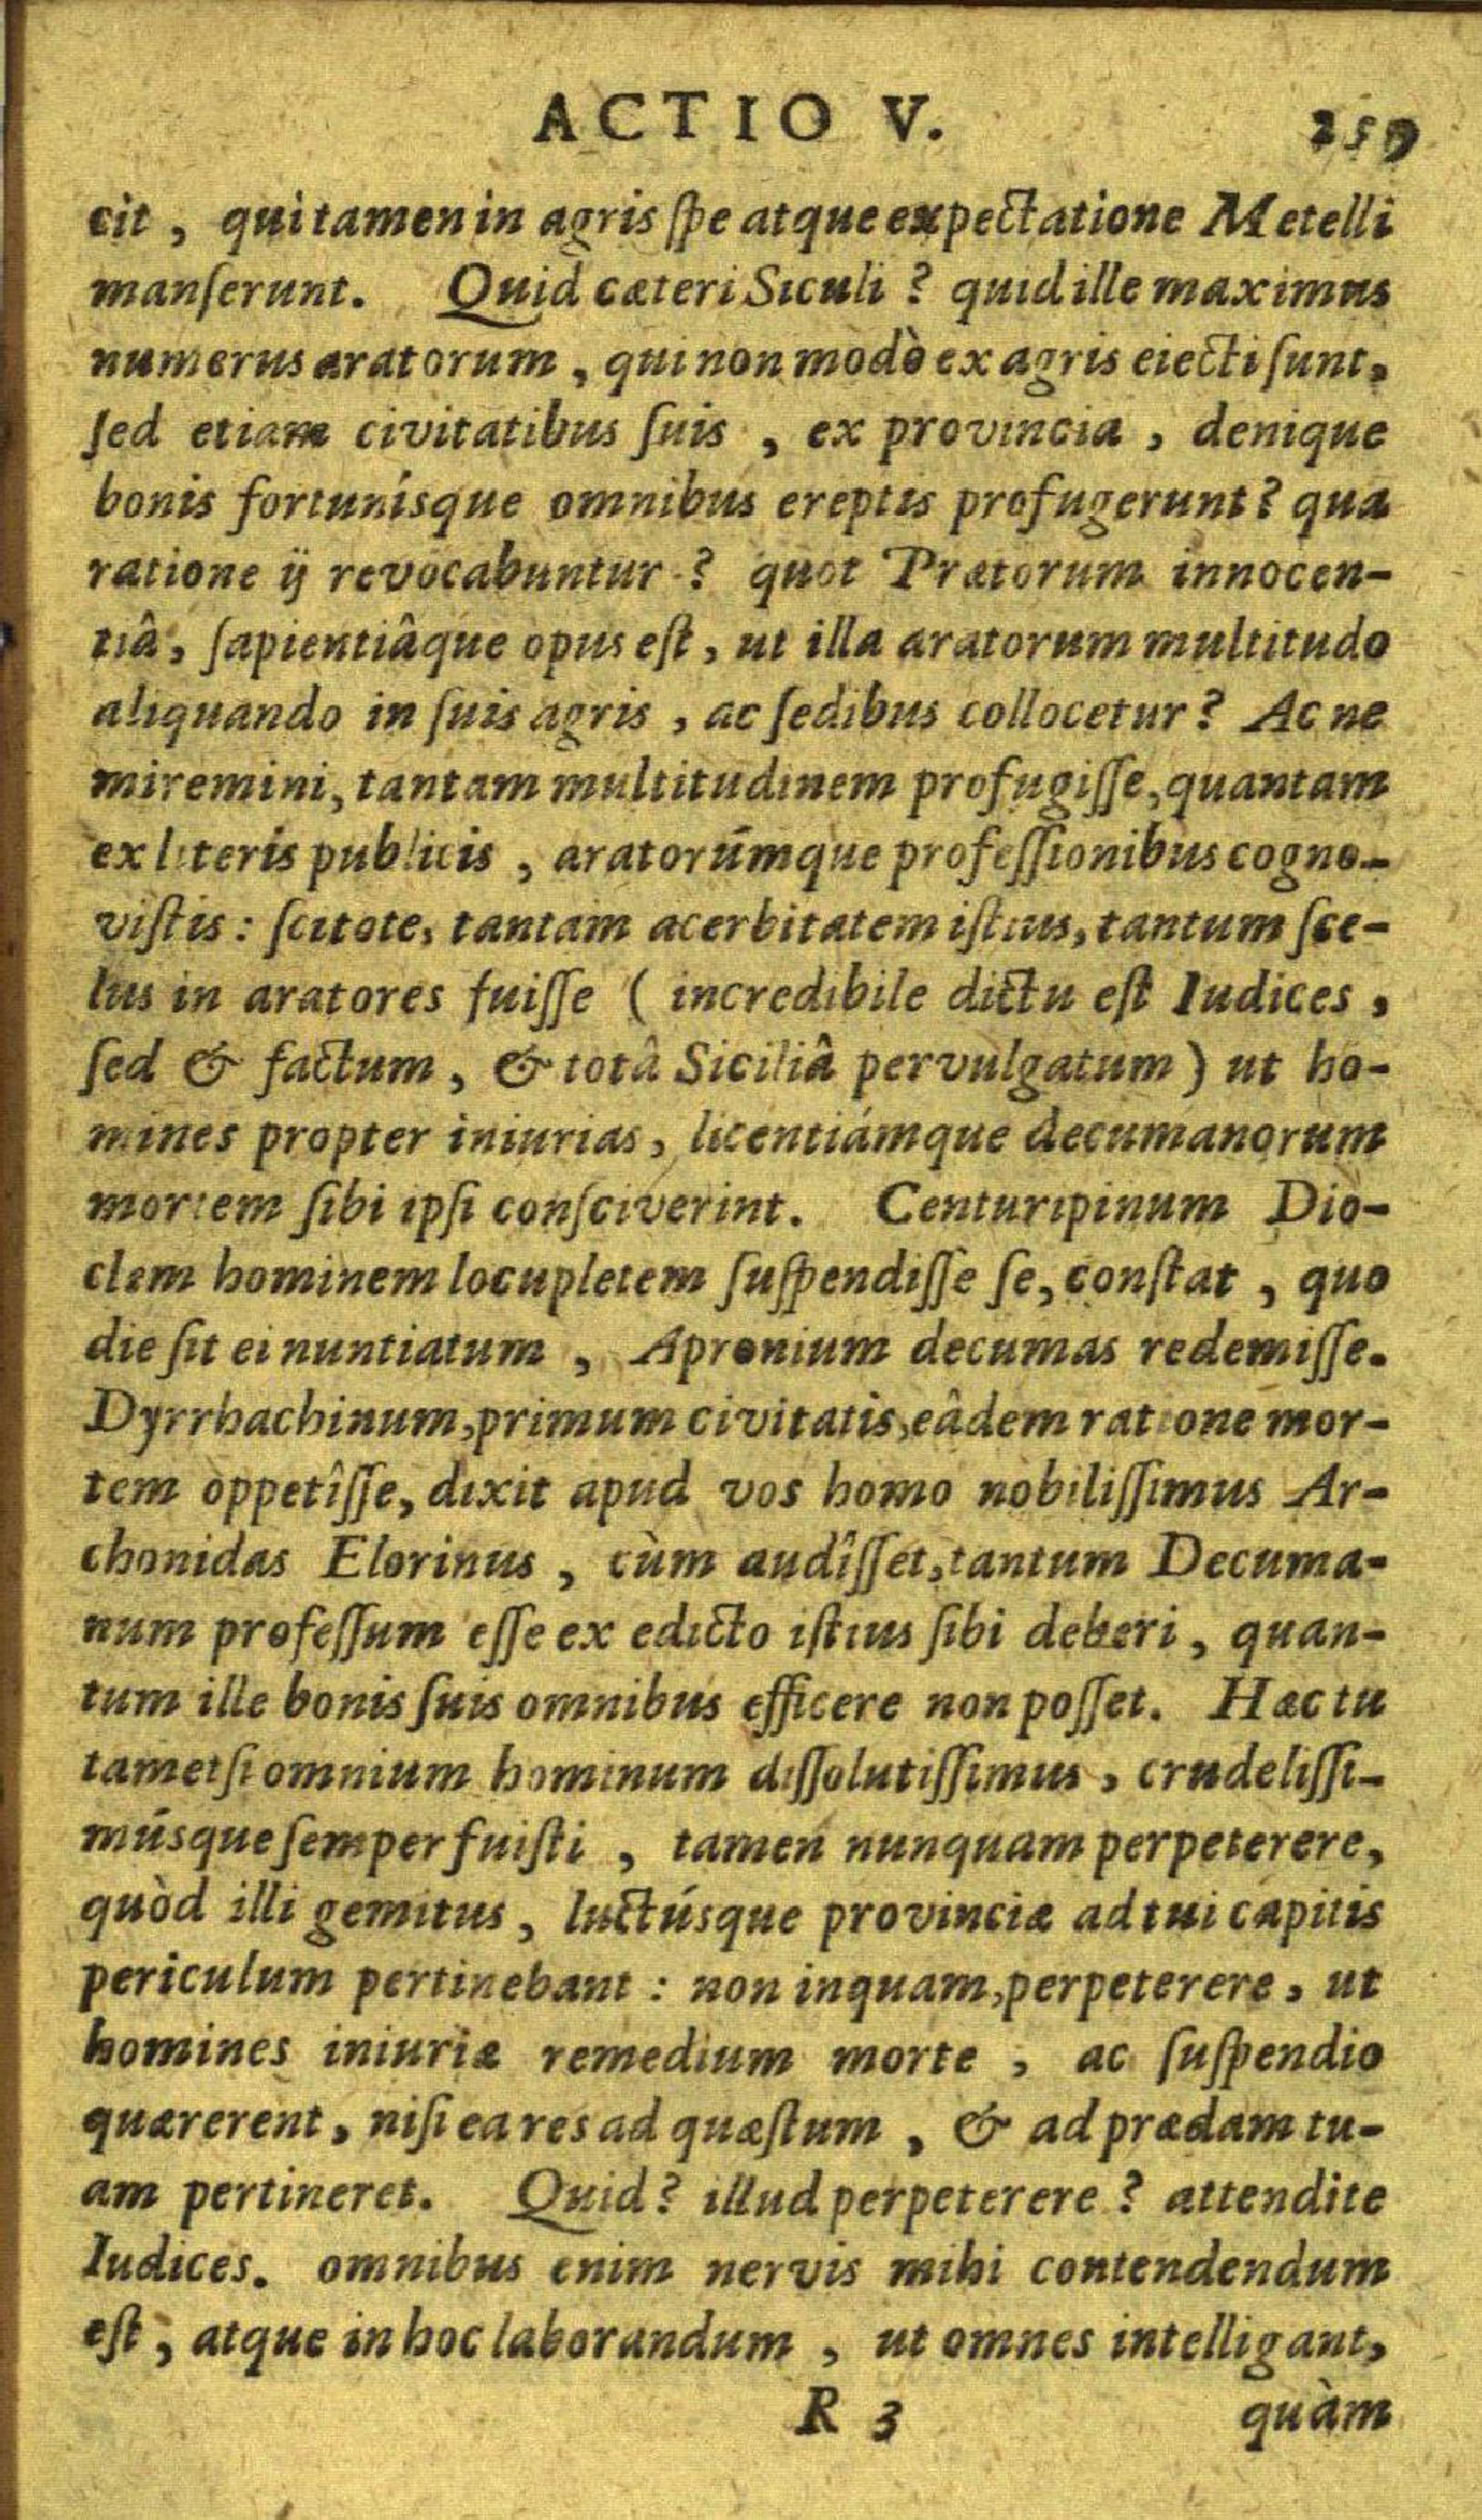 ACTIO V. 259
cit, qui tamen in agris ſpe atque expectatione Metelli
manſerunt. Quid cæteri Siculi? quid ille maximus
numerus aratorum, qui non modò ex agris eiecti ſunt,
ſed etiam civitatibus ſuis, ex provincia, denique
bonis fortunísque omnibus ereptis profugerunt? qua
ratione ij revocabuntur? quot Prætorum innocen-
tiâ, ſapientiâque opus eſt, ut illa aratorum multitudo
aliquando in ſuis agris, ac ſedibus collocetur? Ac ne
miremini, tantam multitudinem profugiſſe, quantam
ex literis publicis, aratorúmque profeſſionibus cogno-
viſtis: ſcitote, tantam acerbitatem iſtius, tantum ſce-
lus in aratores fuiſſe (incredibile dictu eſt Iudices,
ſed & factum, & totâ Siciliâ pervulgatum) ut ho-
mines propter iniurias, licentiámque decumanorum
mortem ſibi ipſi conſciverint. Centuripinum Dio-
clem hominem locupletem ſuſpendiſſe ſe, conſtat, quo
die ſit ei nuntiatum, Apronium decumas redemiſſe.
Dyrrhachinum, primum civitatis, eâdem ratione mor-
tem oppetîſſe, dixit apud vos homo nobiliſſimus Ar-
chonidas Elorinus, cùm audîſſet, tantum Decuma-
num profeſſum eſſe ex edicto iſtius ſibi deberi, quan-
tum ille bonis ſuis omnibus efficere non poſſet. Hæc tu
tametſi omnium hominum diſſolutiſſimus, crudeliſſi-
músque ſemper fuiſti, tamen nunquam perpeterere,
quòd illi gemitus, luctúsque provinciæ ad tui capitis
periculum pertinebant: non inquam, perpeterere, ut
homines iniuriæ remedium morte, ac ſuſpendio
quærerent, niſi ea res ad quæſtum, & ad prædam tu-
am pertineret. Quid? illud perpeterere? attendite
Iudices. omnibus enim nervis mihi contendendum
eſt, atque in hoc laborandum, ut omnes intelligant,
R 3 quàm